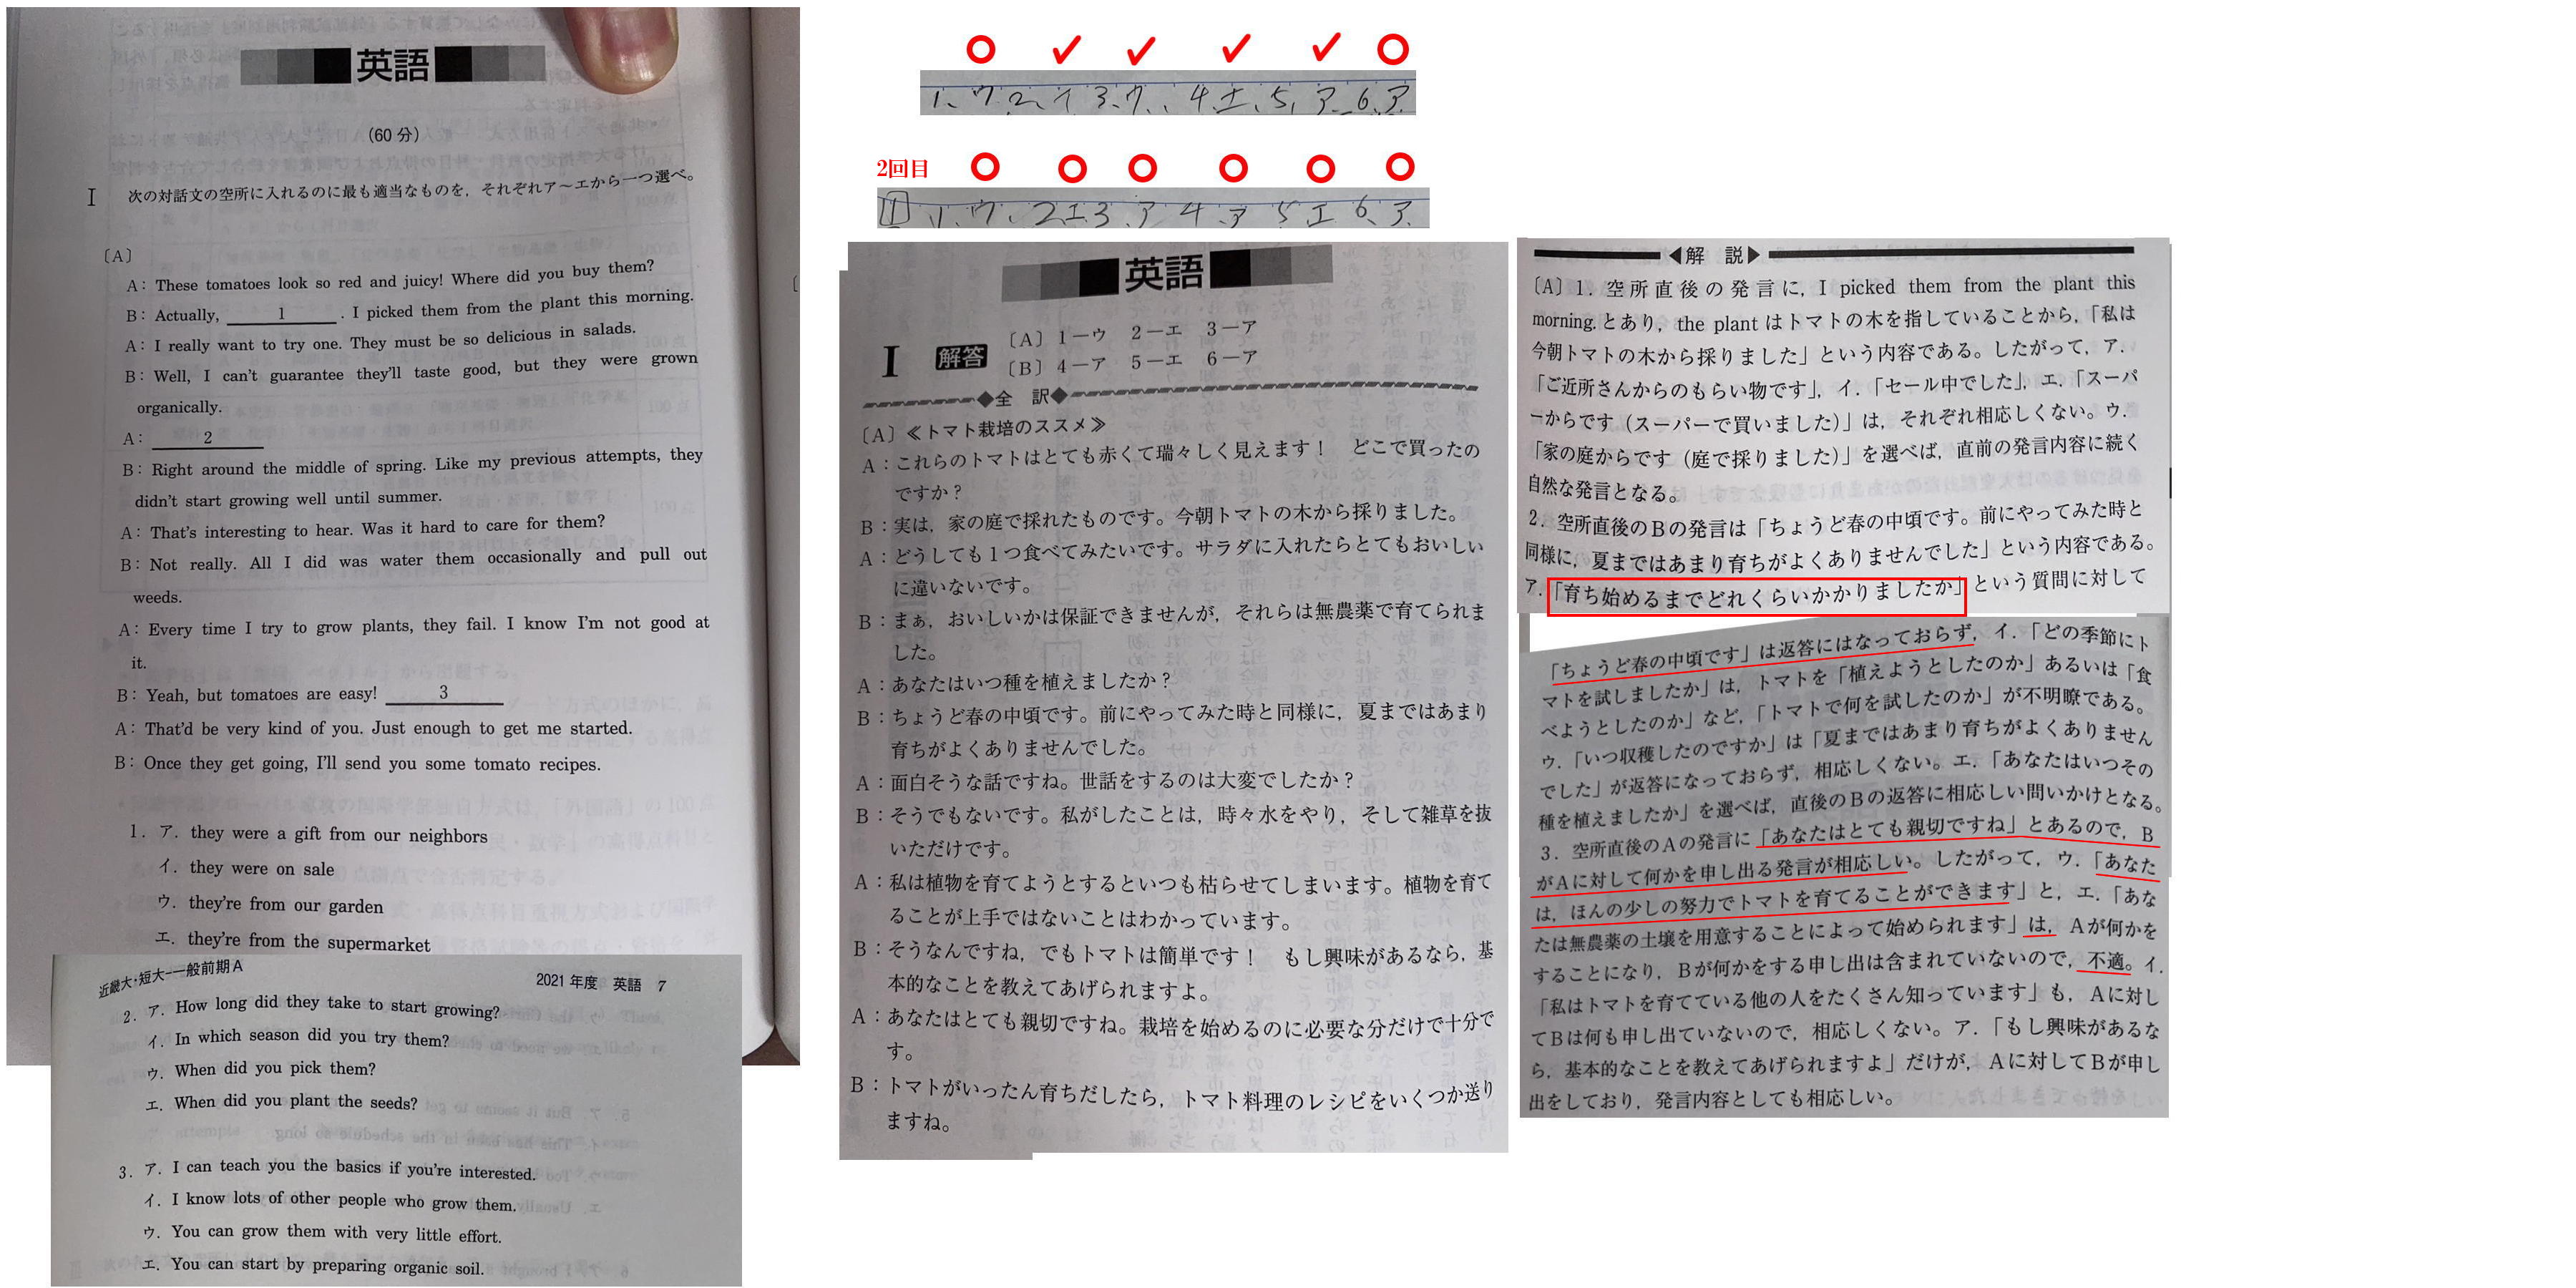 英語
(60分)
I 次の対話文の空所に入れるのに最も適当なものを，それぞれア～エから一つ選べ。
〔A〕
A: These tomatoes look so red and juicy! Where did you buy them?
B: Actually, 1 . I picked them from the plant this morning.
A: I really want to try one. They must be so delicious in salads.
B: Well, I can't guarantee they'll taste good, but they were grown
organically.
A: 2
B: Right around the middle of spring. Like my previous attempts, they
didn't start growing well until summer.
A: That's interesting to hear. Was it hard to care for them?
B: Not really. All I did was water them occasionally and pull out
weeds.
A: Every time I try to grow plants, they fail. I know I'm not good at
it.
B: Yeah, but tomatoes are easy! 3
A: That'd be very kind of you. Just enough to get me started.
B: Once they get going, I'll send you some tomato recipes.
1. ア. they were a gift from our neighbors
イ. they were on sale
ウ. they're from our garden
エ. they're from the supermarket
近畿大・短大-一般前期A 2021年度 英語 7
2. ア. How long did they take to start growing?
イ. In which season did you try them?
ウ. When did you pick them?
エ. When did you plant the seeds?
3. ア. I can teach you the basics if you're interested.
イ. I know lots of other people who grow them.
ウ. You can grow them with very little effort.
エ. You can start by preparing organic soil.
1、ウ 2、イ 3、ウ、 4、エ、5、ア、6、ア.
2回目
I 1、ウ、2、エ 3、ア 4、ア 5 エ 6、ア.
英語
I 解答 〔A〕1－ウ 2－エ 3－ア
〔B〕4－ア 5－エ 6－ア
◆全 訳◆
〔A〕≪トマト栽培のススメ≫
A：これらのトマトはとても赤くて瑞々しく見えます！ どこで買ったの
ですか？
B：実は，家の庭で採れたものです。今朝トマトの木から採りました。
A：どうしても1つ食べてみたいです。サラダに入れたらとてもおいしい
に違いないです。
B：まぁ，おいしいかは保証できませんが，それらは無農薬で育てられま
した。
A：あなたはいつ種を植えましたか？
B：ちょうど春の中頃です。前にやってみた時と同様に，夏まではあまり
育ちがよくありませんでした。
A：面白そうな話ですね。世話をするのは大変でしたか？
B：そうでもないです。私がしたことは，時々水をやり，そして雑草を抜
いただけです。
A：私は植物を育てようとするといつも枯らせてしまいます。植物を育て
ることが上手ではないことはわかっています。
B：そうなんですね，でもトマトは簡単です！ もし興味があるなら，基
本的なことを教えてあげられますよ。
A：あなたはとても親切ですね。栽培を始めるのに必要な分だけで十分で
す。
B：トマトがいったん育ちだしたら，トマト料理のレシピをいくつか送り
ますね。
◀解 説▶
〔A〕1．空所直後の発言に，I picked them from the plant this
morning.とあり，the plant はトマトの木を指していることから，「私は
今朝トマトの木から採りました」という内容である。したがって，ア．
「ご近所さんからのもらい物です」，イ．「セール中でした」，エ．「スーパ
ーからです（スーパーで買いました）」は，それぞれ相応しくない。ウ．
「家の庭からです（庭で採りました）」を選べば，直前の発言内容に続く
自然な発言となる。
2．空所直後のBの発言は「ちょうど春の中頃です。前にやってみた時と
同様に，夏まではあまり育ちがよくありませんでした」という内容である。
ア．「育ち始めるまでどれくらいかかりましたか」という質問に対して
「ちょうど春の中頃です」は返答にはなっておらず，イ．「どの季節にト
マトを試しましたか」は，トマトを「植えようとしたのか」あるいは「食
べようとしたのか」など，「トマトで何を試したのか」が不明瞭である。
ウ．「いつ収穫したのですか」は「夏まではあまり育ちがよくありません
でした」が返答になっておらず，相応しくない。エ．「あなたはいつその
種を植えましたか」を選べば，直後のBの返答に相応しい問いかけとなる。
3．空所直後のAの発言に「あなたはとても親切ですね」とあるので，B
がAに対して何かを申し出る発言が相応しい。したがって，ウ．「あなた
は，ほんの少しの努力でトマトを育てることができます」と，エ．「あな
たは無農薬の土壌を用意することによって始められます」は，Aが何かを
することになり，Bが何かをする申し出は含まれていないので，不適。イ．
「私はトマトを育てている他の人をたくさん知っています」も，Aに対し
てBは何も申し出ていないので，相応しくない。ア．「もし興味があるな
ら，基本的なことを教えてあげられますよ」だけが，Aに対してBが申し
出をしており，発言内容としても相応しい。